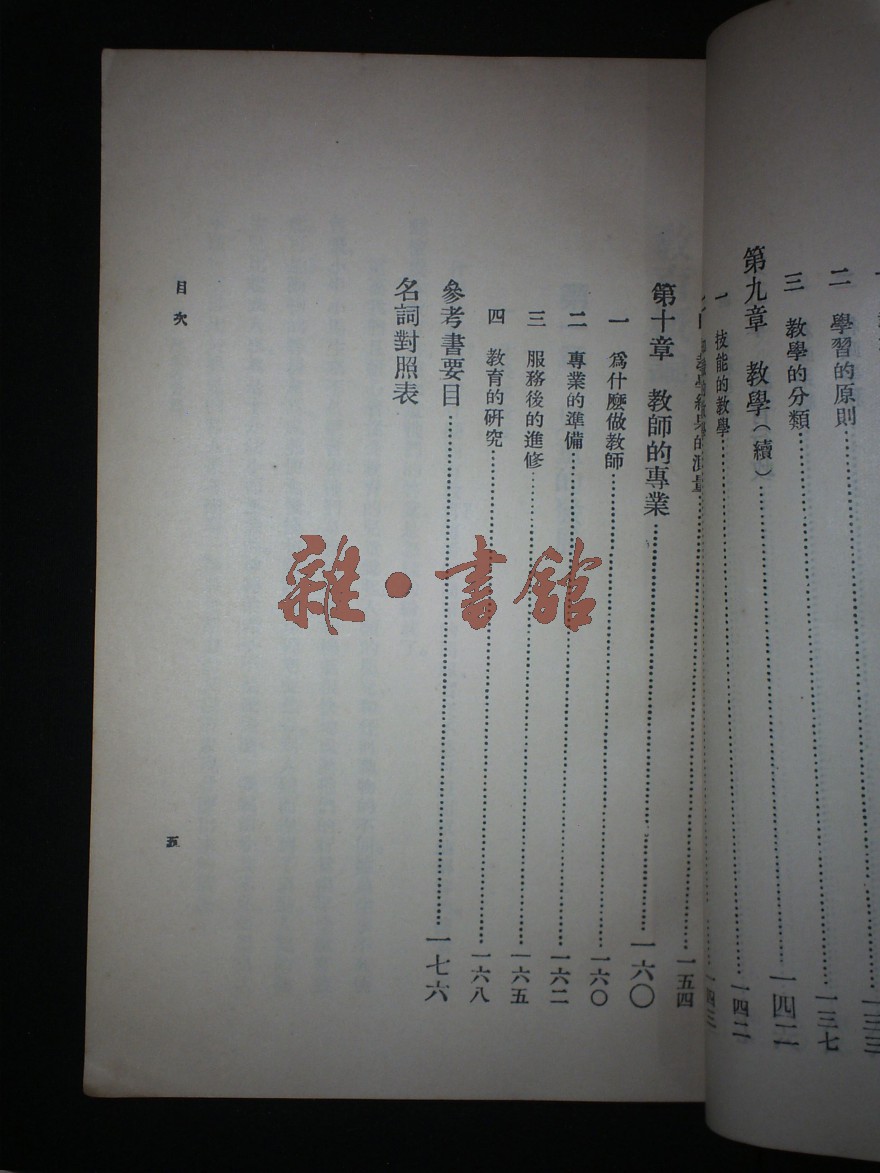 二　學習的原則
三　教學的分類……一三七
第九章　教學（續）……一四二
一　技能的教學……一四二
教學結果的測量……一五四
第十章　教師的專業……一六〇
一　爲什麼做教師……一六〇
二　專業的準備……一六二
三　服務後的進修……一六五
四　教育的研究……一六八
參考書要目……一七六
名詞對照表
目次
五
雜·書館